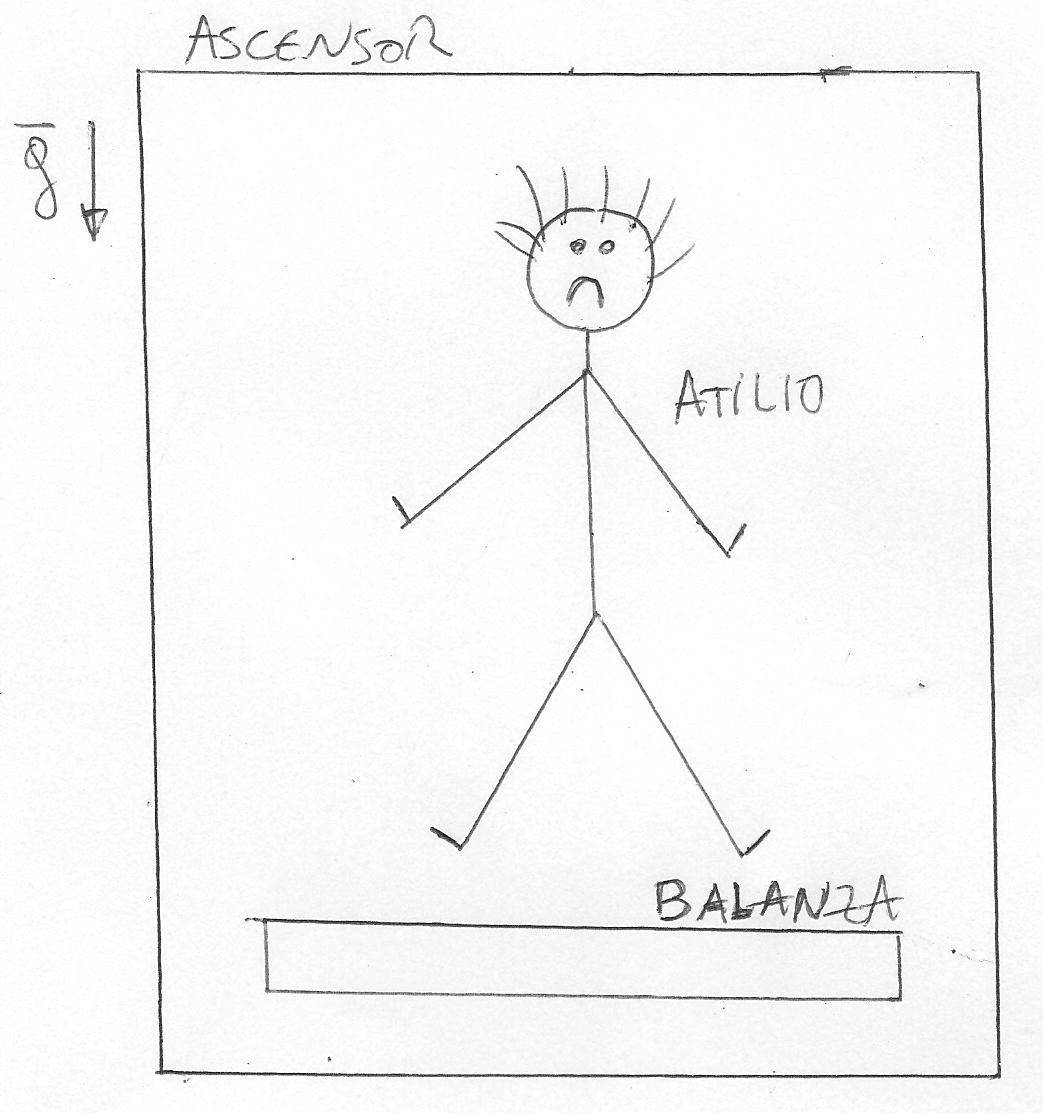 ASCENSOR
g
ATILIO
BALANZA